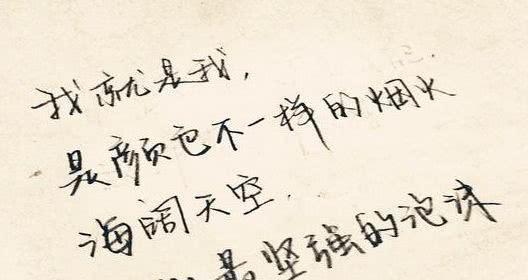 我就是我,
是颜色不一样的烟火
海阔天空.
最坚强的泡沫